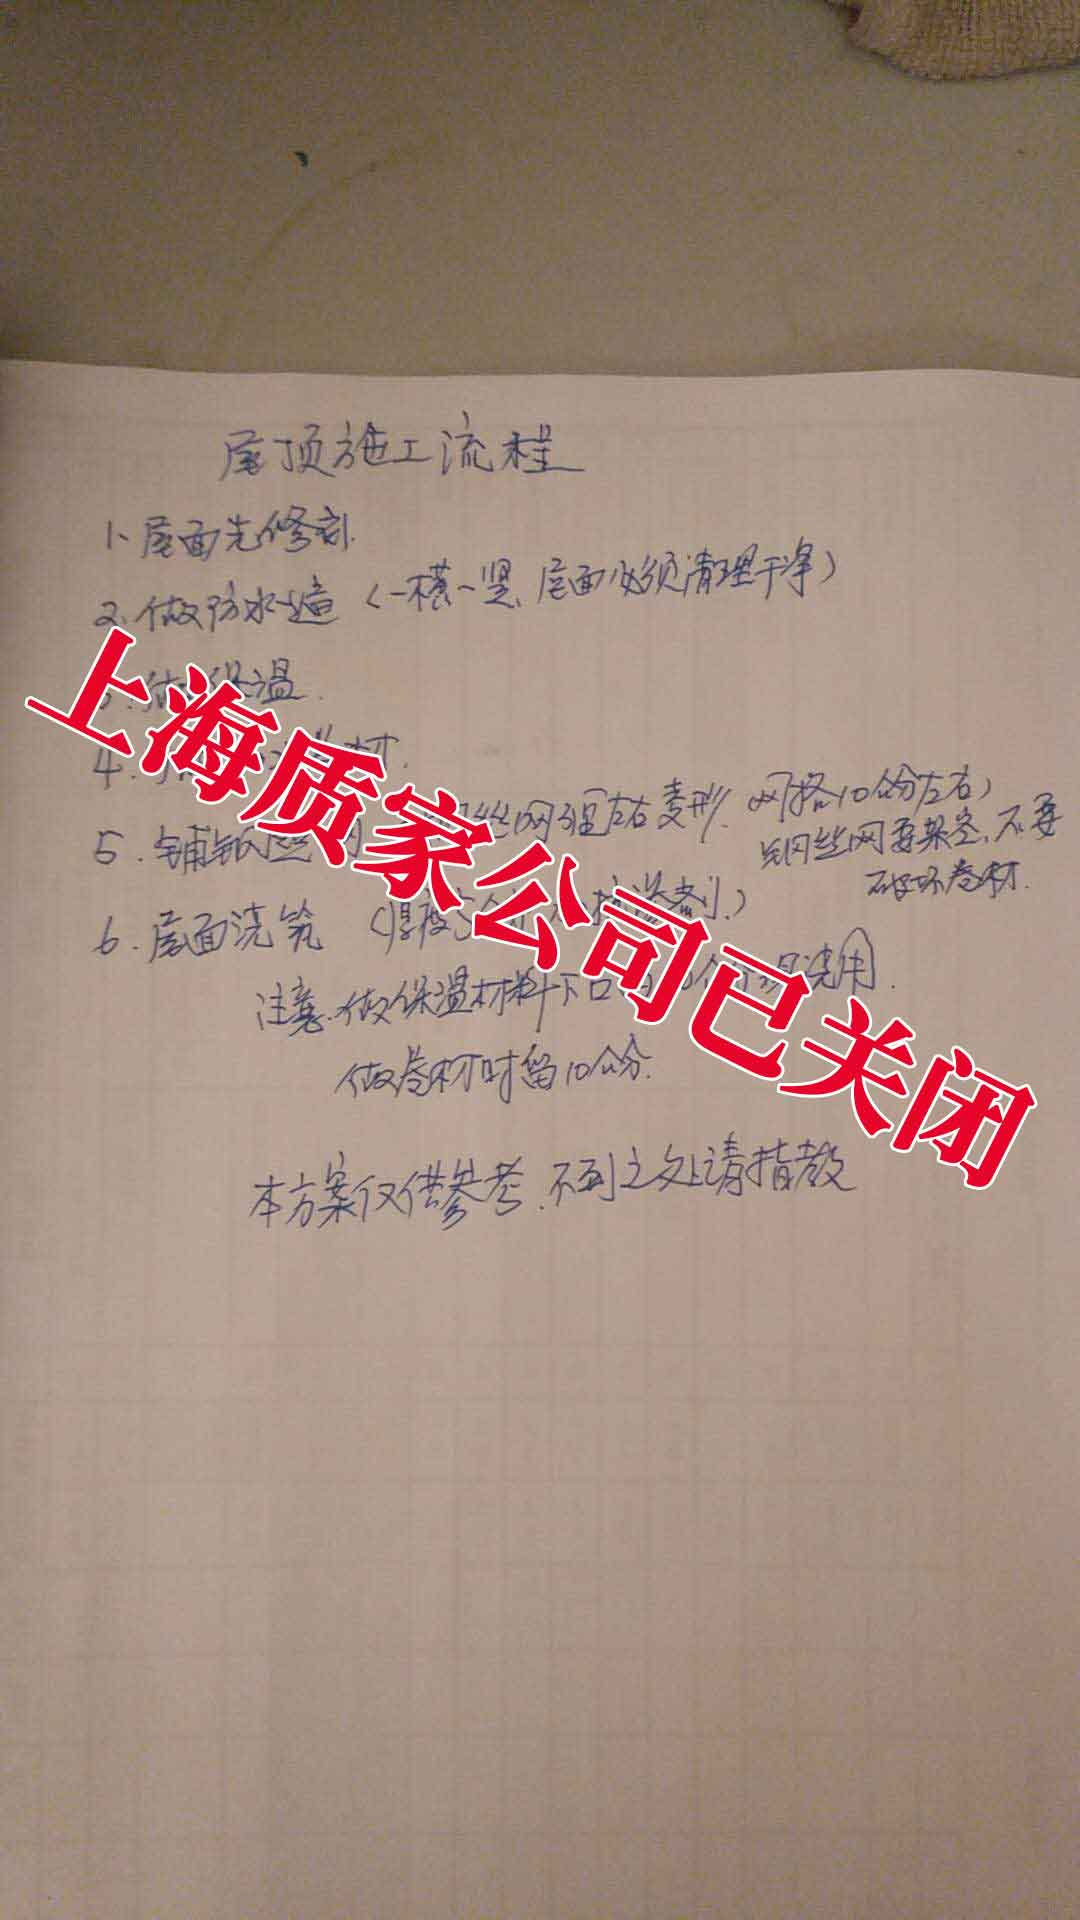 屋顶施工流程
1、屋面先修割.
2、做防水一遍（一横一竖、屋面必须清理干净）
保温.
4.材.
5.铺钢丝网 丝网 左右变形.（网格10公分左右）
钢丝网要架空、不要
破坏卷材.
6.屋面浇筑（厚度5公分
注意.做保温材料下口
做卷材时留10公分.
本方案仅供参考.不到之处请指教
上海质家公司已关闭